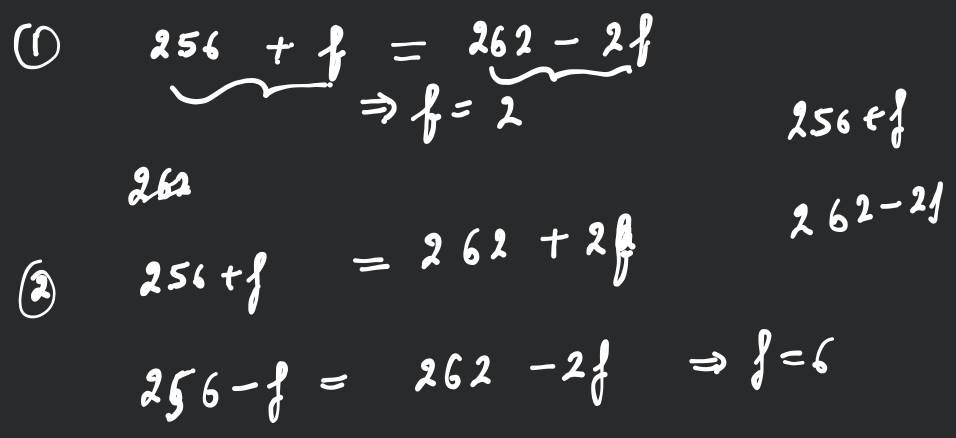 ① 256 + f = 262 - 2f
⇒ f = 2
256 + f
262
262 - 2f
② 256 + f = 262 + 2f
256 - f = 262 - 2f ⇒ f = 6